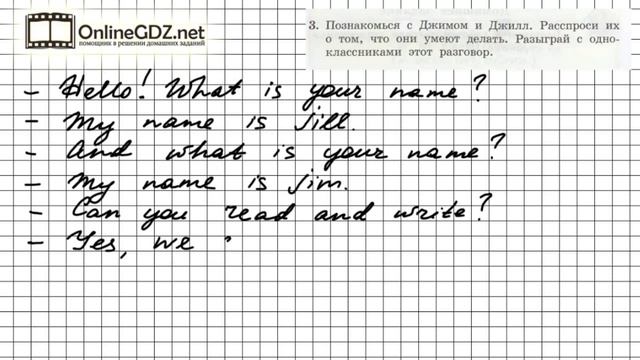 OnlineGDZ.net
помощник в решении домашних заданий
3. Познакомься с Джимом и Джилл. Расспроси их
о том, что они умеют делать. Разыграй с одно-
классниками этот разговор.
- Hello! What is your name?
- My name is Jill.
- And what is your name?
- My name is Jim.
- Can you read and write?
- Yes, we